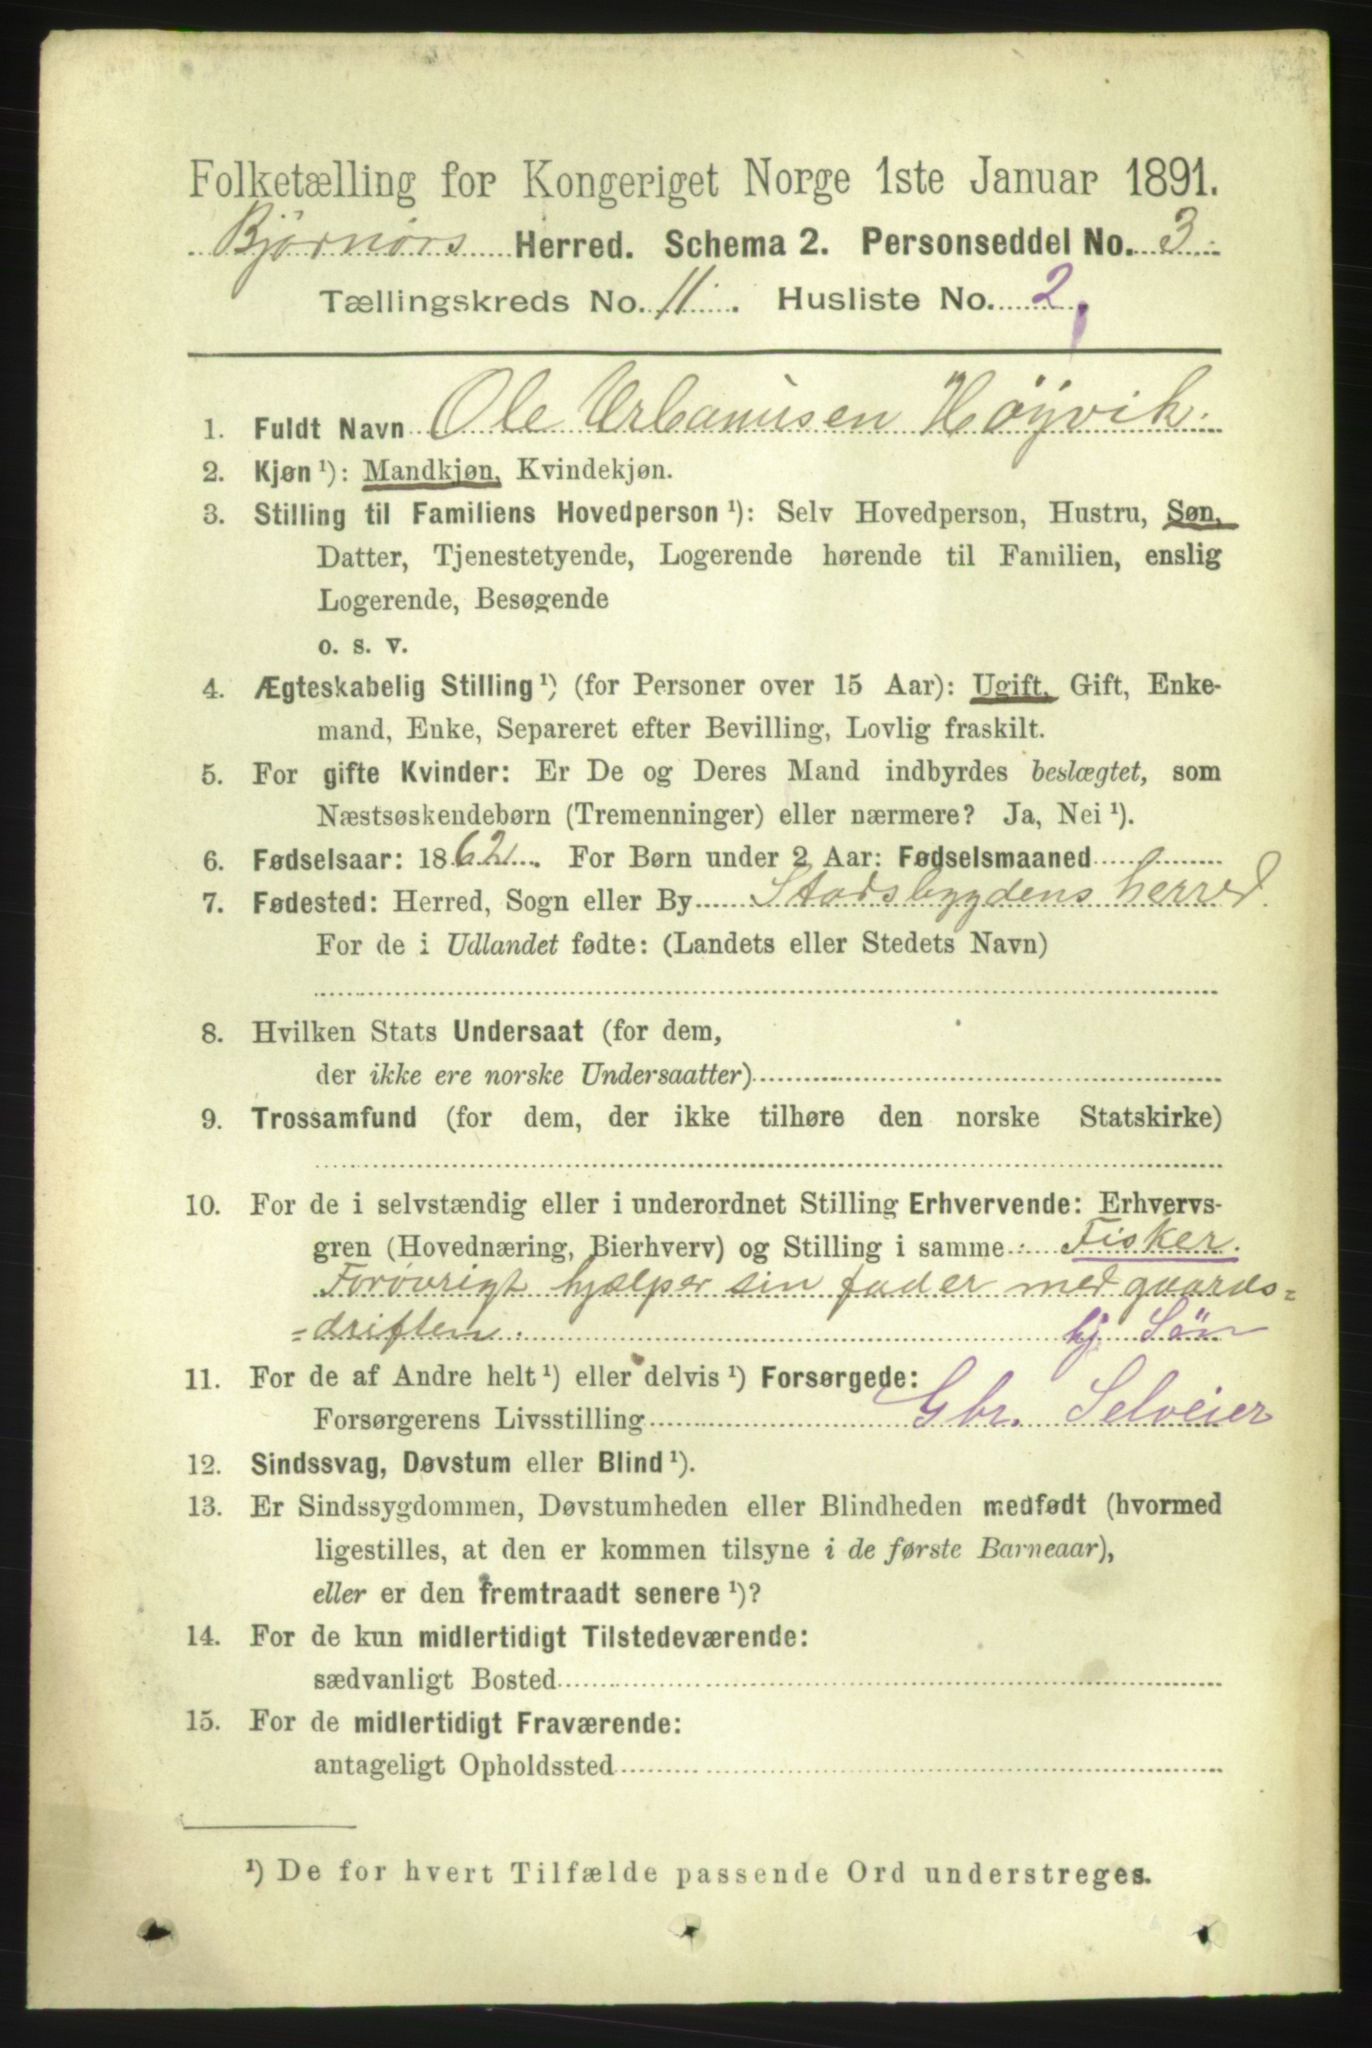 Folketælling for Kongeriget Norge 1ste Januar 1891.
Bjørnørs Herred. Schema 2. Personseddel No. 3.
Tællingskreds No. 11. Husliste No. 2
1. Fuldt Navn Ole Urbanusen Höyvik.
2. Kjøn ¹): Mandkjøn, Kvindekjøn.
3. Stilling til Familiens Hovedperson ¹): Selv Hovedperson, Hustru, Søn,
Datter, Tjenestetyende, Logerende hørende til Familien, enslig
Logerende, Besøgende
o. s. v.
4. Ægteskabelig Stilling ¹) (for Personer over 15 Aar): Ugift, Gift, Enke-
mand, Enke, Separeret efter Bevilling, Lovlig fraskilt.
5. For gifte Kvinder: Er De og Deres Mand indbyrdes beslægtet, som
Næstsøskendebørn (Tremenninger) eller nærmere? Ja, Nei ¹).
6. Fødselsaar: 1862. For Børn under 2 Aar: Fødselsmaaned
7. Fødested: Herred, Sogn eller By Stadsbygdens herred.
For de i Udlandet fødte: (Landets eller Stedets Navn)
8. Hvilken Stats Undersaat (for dem,
der ikke ere norske Undersaatter)
9. Trossamfund (for dem, der ikke tilhøre den norske Statskirke)
10. For de i selvstændig eller i underordnet Stilling Erhvervende: Erhvervs-
gren (Hovednæring, Bierhverv) og Stilling i samme Fisker.
Forøvrigt hjælper sin fader med gaards=
=driften. hj Sön
11. For de af Andre helt ¹) eller delvis ¹) Forsørgede:
Forsørgerens Livsstilling Gbr. Selveier
12. Sindssvag, Døvstum eller Blind ¹).
13. Er Sindssygdommen, Døvstumheden eller Blindheden medfødt (hvormed
ligestilles, at den er kommen tilsyne i de første Barneaar),
eller er den fremtraadt senere ¹)?
14. For de kun midlertidigt Tilstedeværende:
sædvanligt Bosted
15. For de midlertidigt Fraværende:
antageligt Opholdssted
¹) De for hvert Tilfælde passende Ord understreges.